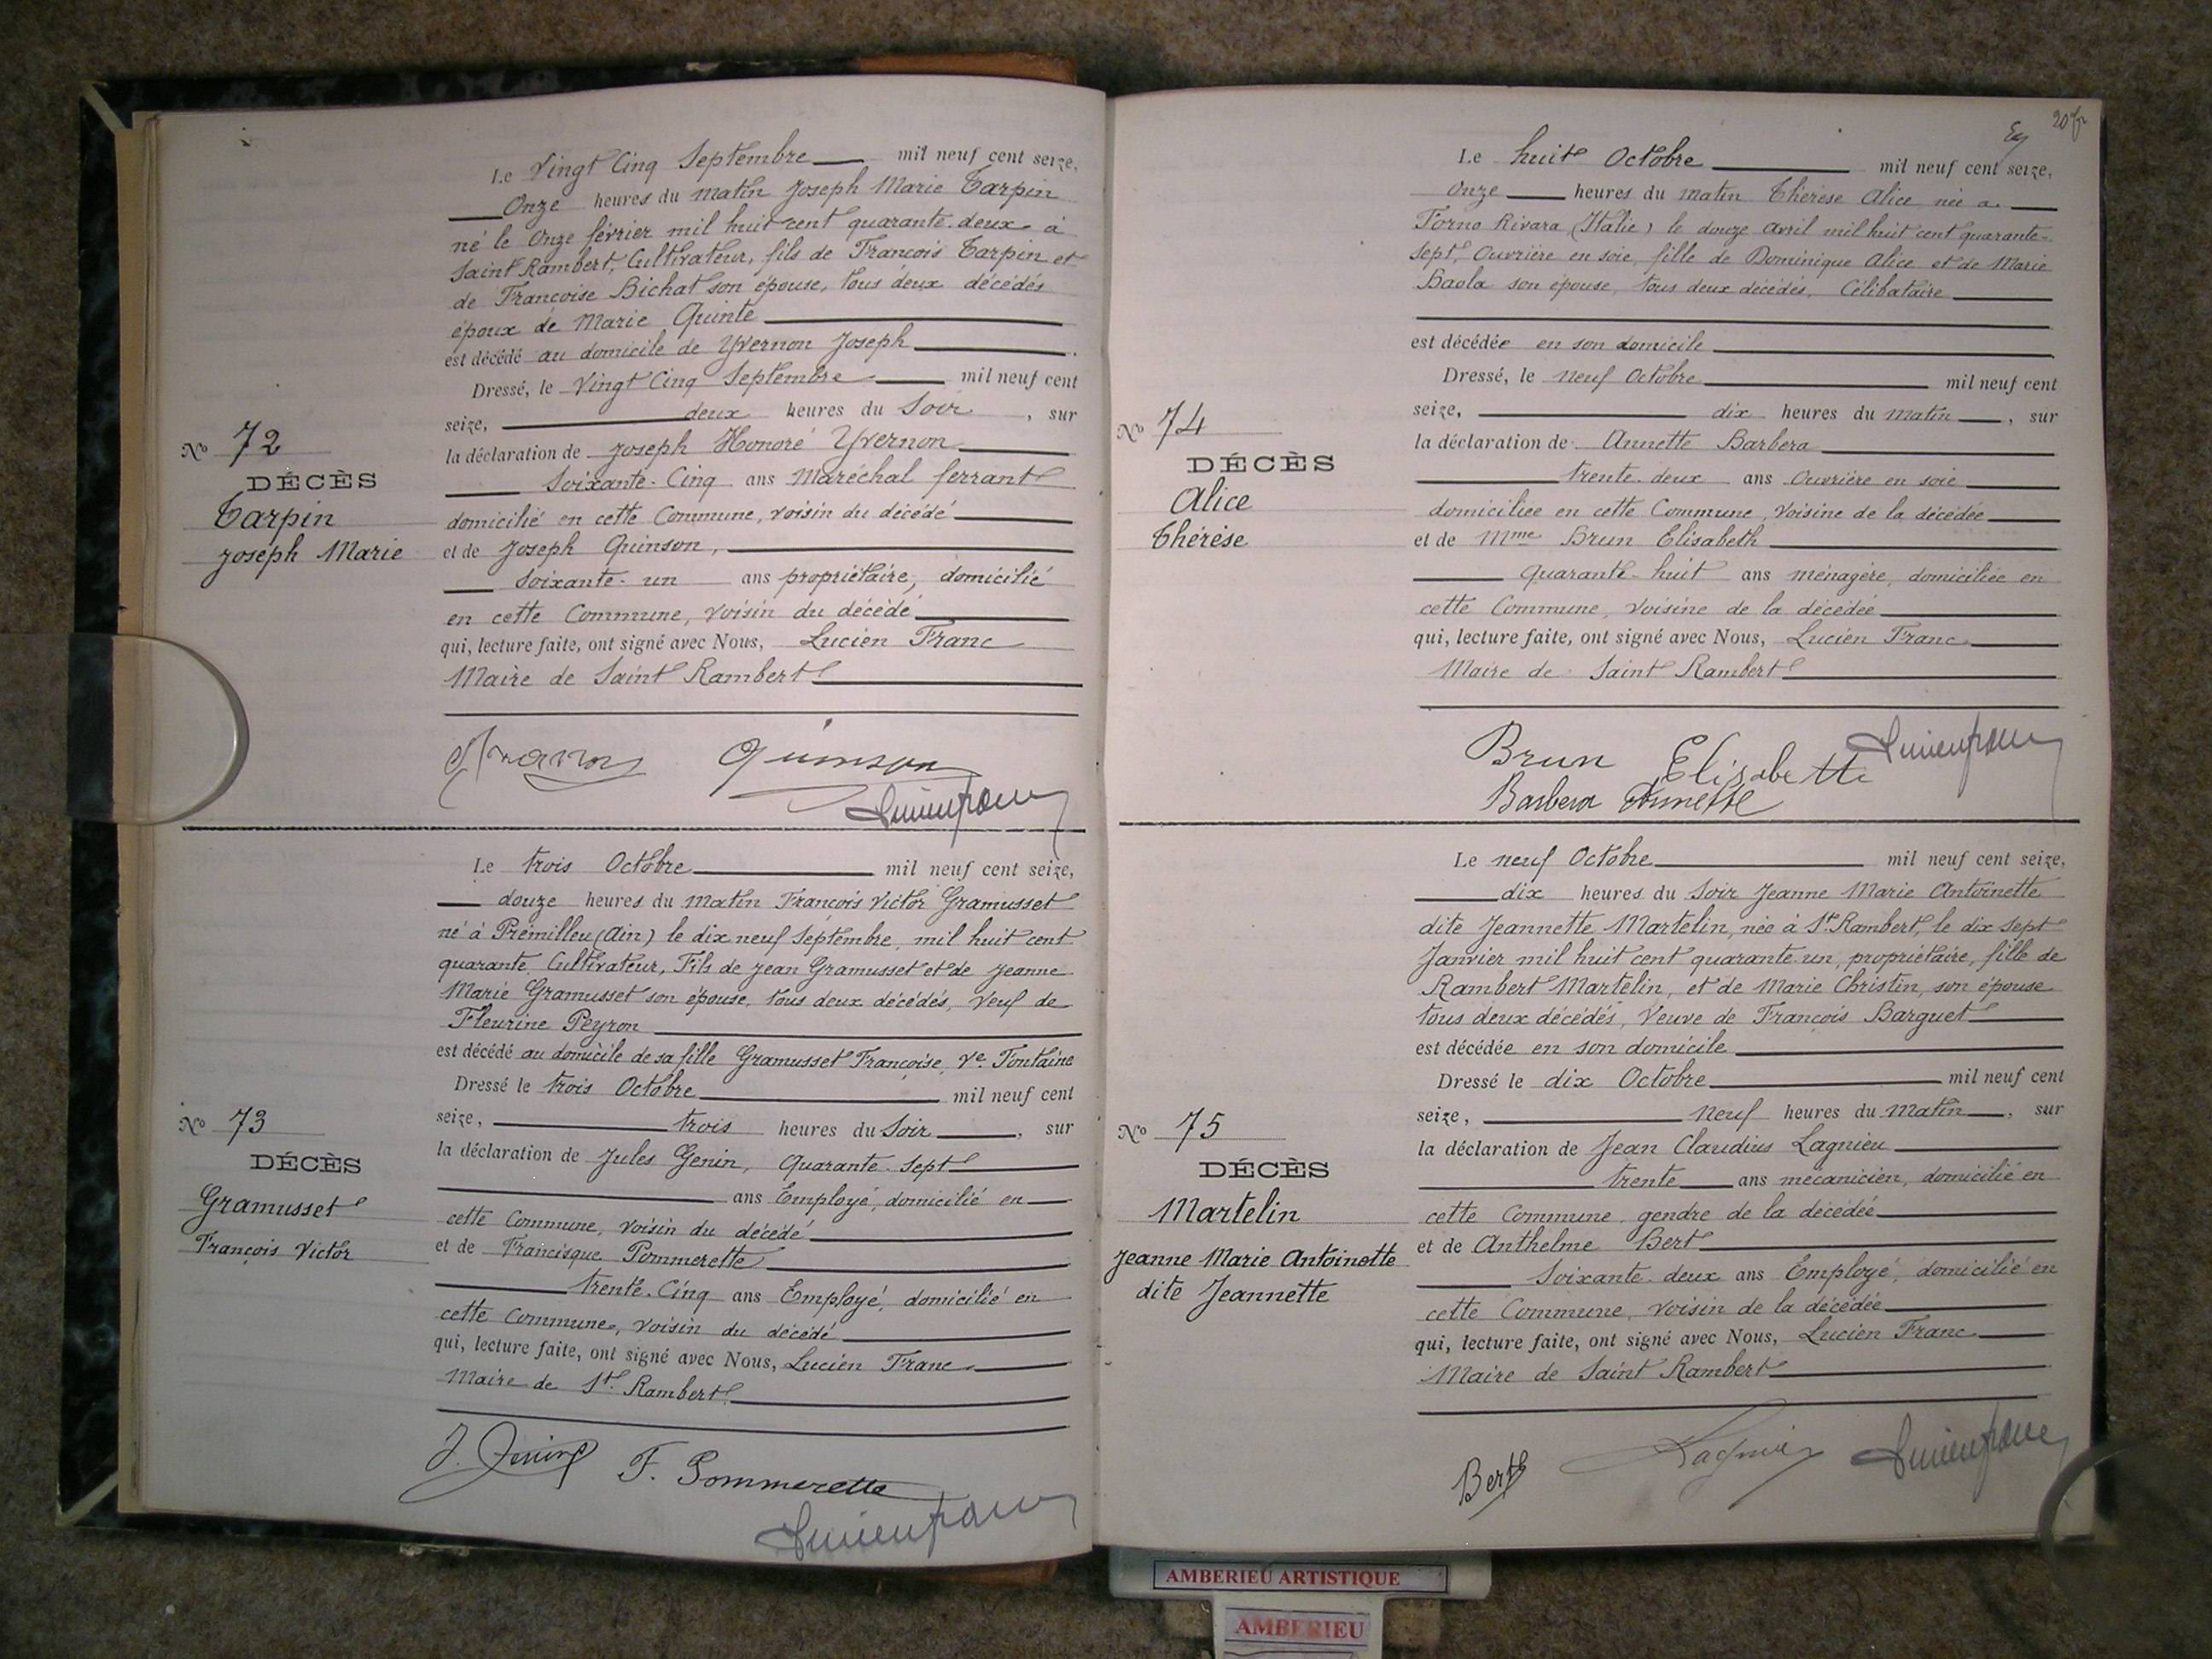 Le Vingt Cinq Septembre mil neuf cent seize,
Onze heures du matin Joseph Marie Tarpin
né le Onze février mil huit cent quarante-deux à
Saint Rambert, Cultivateur, fils de François Tarpin et
de Françoise Bichat son épouse, tous deux décédés
époux de Marie Quinte
est décédé au domicile de Yvernon Joseph
Dressé, le Vingt Cinq Septembre mil neuf cent
seize, deux heures du Soir, sur
la déclaration de Joseph Honoré Yvernon
Soixante-Cinq ans Maréchal ferrant
domicilié en cette Commune, voisin du décédé
et de Joseph Quinson,
Soixante-un ans propriétaire, domicilié
en cette Commune, voisin du décédé
qui, lecture faite, ont signé avec Nous, Lucien Franc
Maire de Saint Rambert
No 72
DÉCÈS
Tarpin
Joseph Marie
Quinson
Lucien Franc
Le trois Octobre mil neuf cent seize,
douze heures du matin François Victor Gramusset
né à Prémilleu (Ain) le dix neuf Septembre, mil huit cent
quarante, Cultivateur, Fils de Jean Gramusset et de Jeanne
Marie Gramusset son épouse, tous deux décédés, Veuf de
Fleurine Peyron
est décédé au domicile de sa fille Gramusset Françoise, Ve. Fontaine
Dressé le trois Octobre mil neuf cent
seize, trois heures du Soir, sur
la déclaration de Jules Genin, Quarante-Sept
ans Employé, domicilié en
cette Commune, voisin du décédé
et de Francisque Pommerette
trente-Cinq ans Employé, domicilié en
cette Commune, voisin du décédé
qui, lecture faite, ont signé avec Nous, Lucien Franc
Maire de St. Rambert
No 73
DÉCÈS
Gramusset
François Victor
J. Genin F. Pommerette
Lucien Franc
20 fr
Le huit Octobre mil neuf cent seize,
Onze heures du matin Thérèse Alice née à
Forno Rivara (Italie) le douze Avril mil huit cent quarante-
Sept, Ouvrière en soie, fille de Dominique Alice et de Marie
Baola son épouse, tous deux décédés, Célibataire
est décédée en son domicile
Dressé, le neuf Octobre mil neuf cent
seize, dix heures du matin, sur
la déclaration de Annette Barbera
trente-deux ans Ouvrière en soie
domiciliée en cette Commune, voisine de la décédée
et de Mme Brun Elisabeth
quarante-huit ans ménagère, domiciliée en
cette Commune, voisine de la décédée
qui, lecture faite, ont signé avec Nous, Lucien Franc
Maire de Saint Rambert
No 74
DÉCÈS
Alice
Thérèse
Brun Elisabette Lucien Franc
Barbera Annette
Le neuf Octobre mil neuf cent seize,
dix heures du Soir Jeanne Marie Antoinette
dite Jeannette Martelin, née à St. Rambert, le dix sept
Janvier mil huit cent quarante-un, propriétaire, fille de
Rambert Martelin, et de Marie Christin, son épouse
tous deux décédés, Veuve de François Barguet
est décédée en son domicile
Dressé le dix Octobre mil neuf cent
seize, Neuf heures du Matin, sur
la déclaration de Jean Claudius Lagnieu
trente ans mécanicien, domicilié en
cette Commune, gendre de la décédée
et de Anthelme Bert
Soixante-deux ans Employé, domicilié en
cette Commune, voisin de la décédée
qui, lecture faite, ont signé avec Nous, Lucien Franc
Maire de Saint Rambert
No 75
DÉCÈS
Martelin
Jeanne Marie Antoinette
dite Jeannette
Bert Lagnieu Lucien Franc
AMBERIEU ARTISTIQUE
AMBERIEU